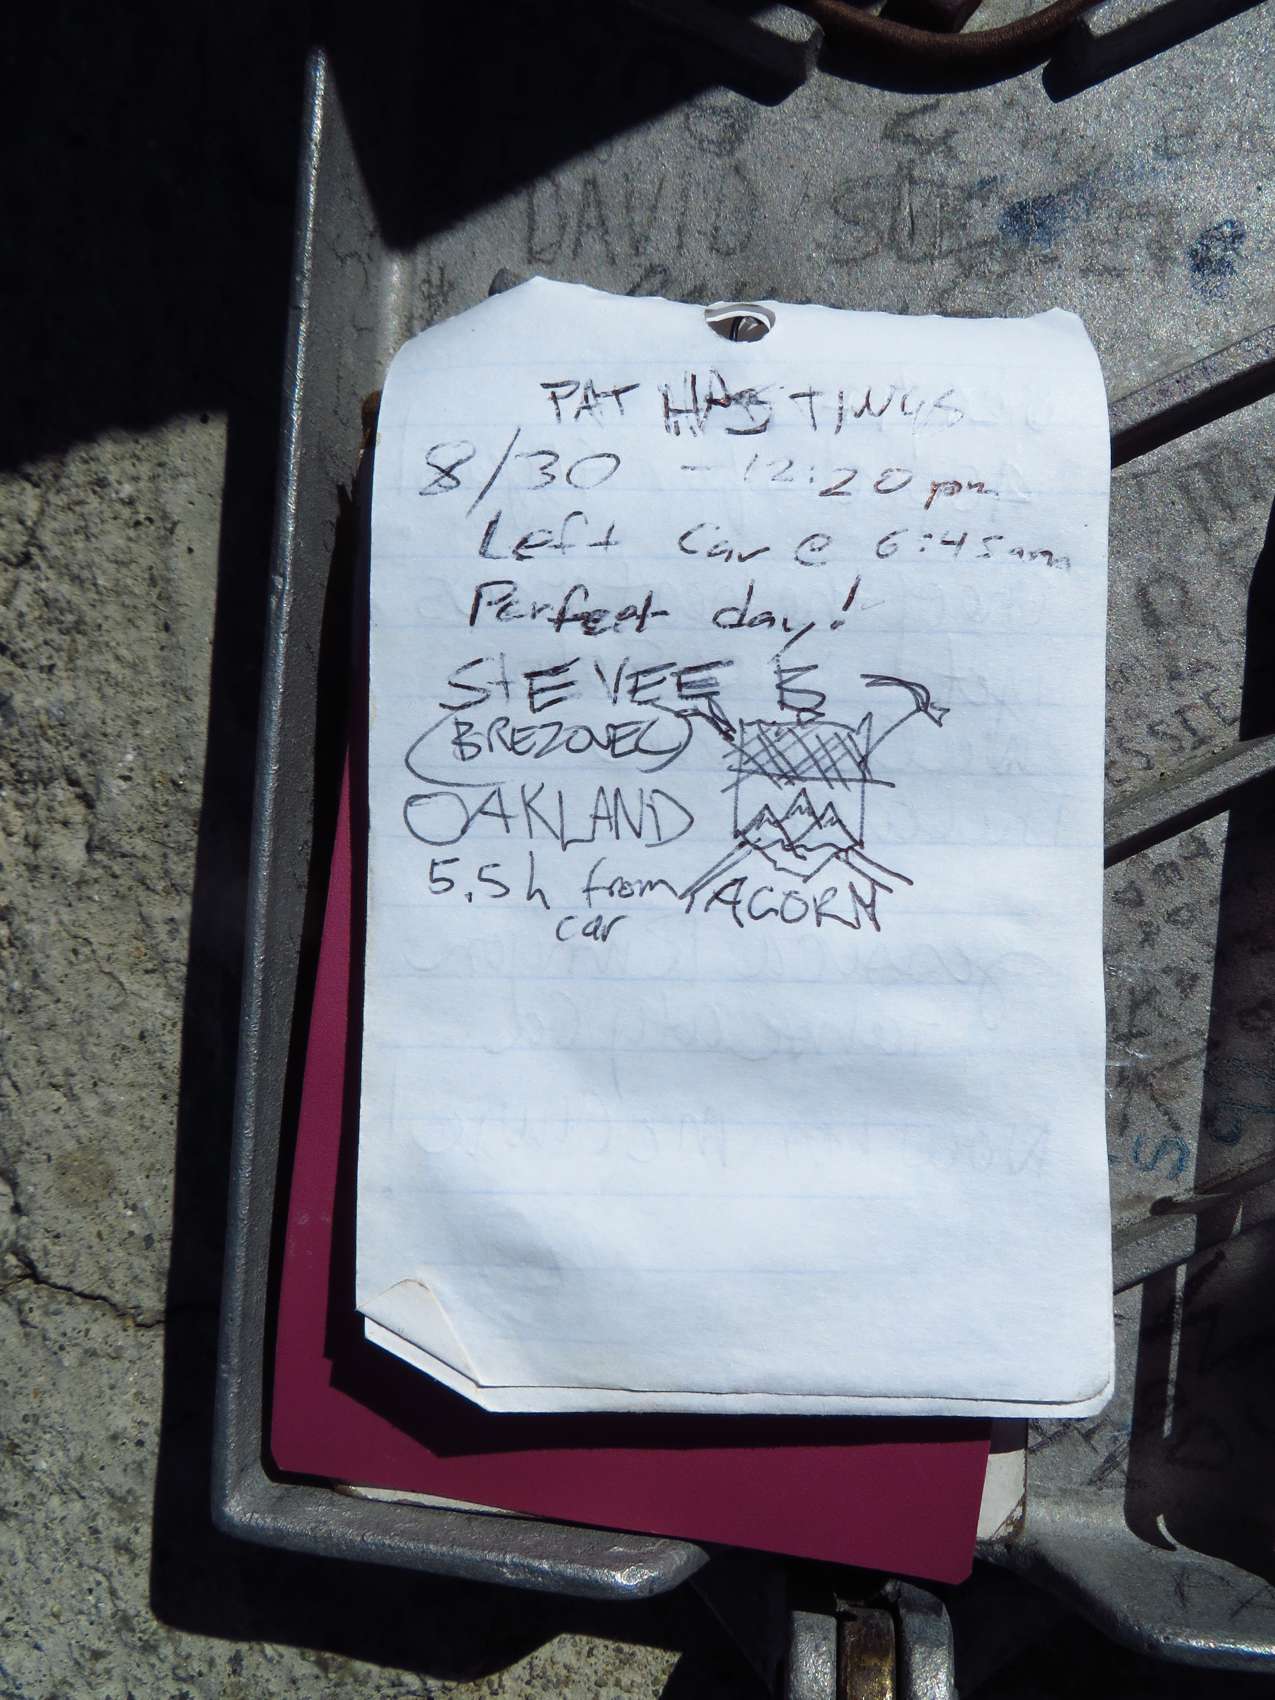 DAVID
PAT HASTINGS
8/30 - 12:20 pm
Left car @ 6:45am
Perfect day!
STEVEE B
(BREZOVEC)
OAKLAND
5.5h from
car
ACORN